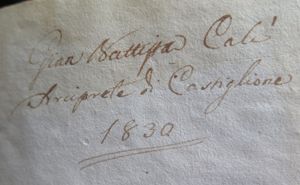 Gian Battista Calì
Arciprete di Castiglione
1830